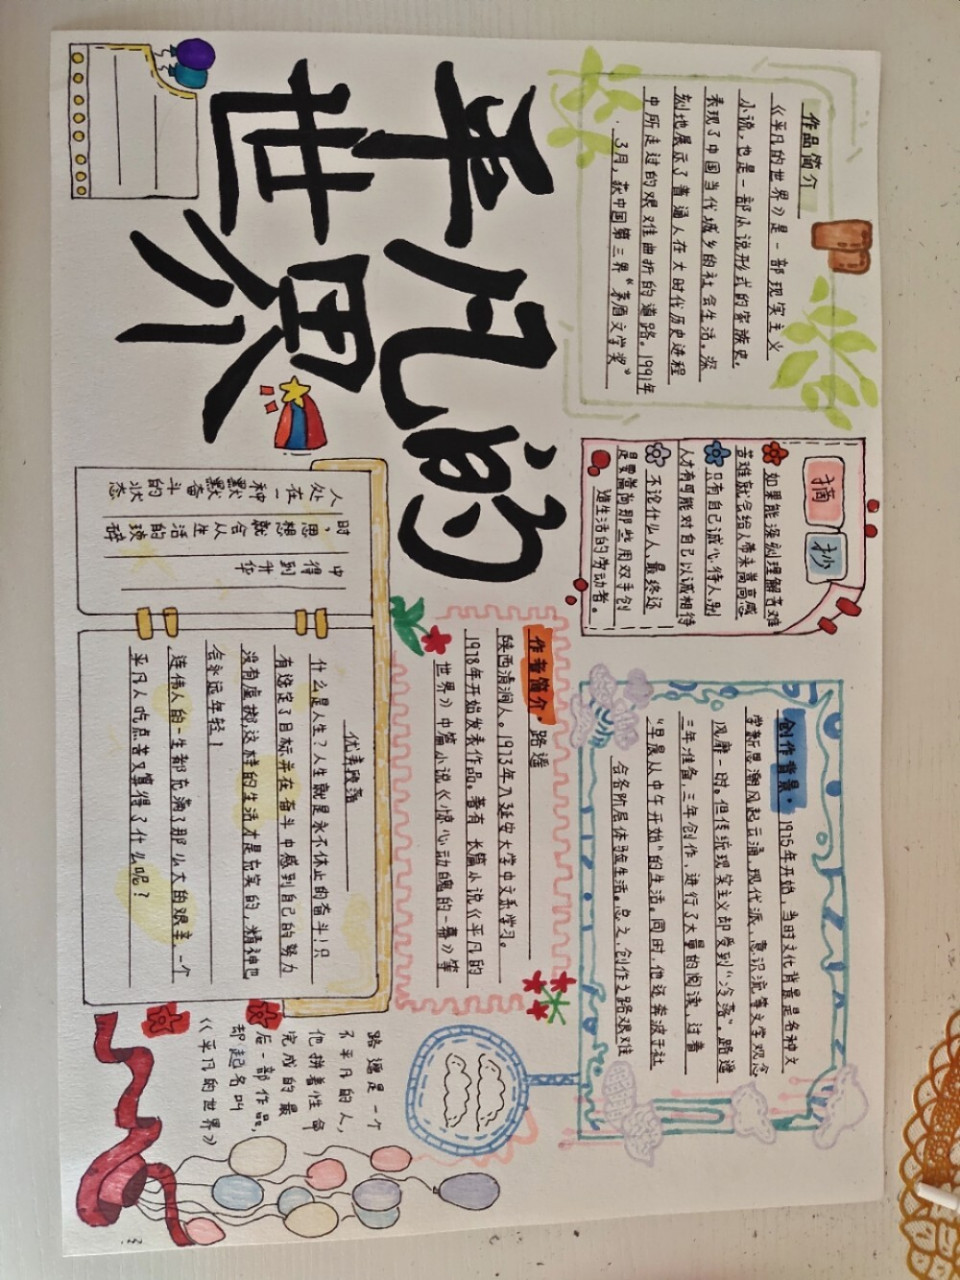 平凡的
世界
作品简介
《平凡的世界》是一部现实主义
小说,也是一部小说形式的家族史,
表现了中国当代城乡的社会生活。深
刻地展示了普通人在大时代历史进程
中所走过的艰难曲折的道路。1991年
3月,获中国第三界“茅盾文学奖”
摘抄
如果能深刻理解苦难
苦难就会给人带来崇高感
只有自己诚心待人,别
人才有可能对自己以诚相待
不论什么人,最终还
是要当个那些用双手创
造生活的劳动者。
创作背景· 1975年开始,当时文化背景是各种文
学新思潮风起云涌,现代派、意识流等文学观念
风靡一时。但传统现实主义却受到“冷落”。路遥
三年准备,三年创作,进行了大量的阅读,过着
“早晨从中午开始”的生活。同时,他还奔波于社
会各阶层体验生活。总之,创作之路艰难
作者简介·路遥
陕西清涧人。1973年入延安大学中文系学习。
1978年开始发表作品。著有 长篇小说《平凡的
世界》中篇小说《惊心动魄的一幕》等
人处在一种默默奋斗的状态
时,思想就会从生活的琐碎
中得到升华
优美段落
什么是人生?人生就是永不休止的奋斗!只
有选定了目标并在奋斗中感到自己的努力
没有虚掷,这样的生活才是充实的,精神也
会永远年轻!
连伟人的一生都充满了那么大的艰辛,一个
平凡人吃点苦又算得了什么呢?
路遥是一个
不平凡的人,
他拼着性命
完成的最
后一部作品,
却起名叫
《平凡的世界》